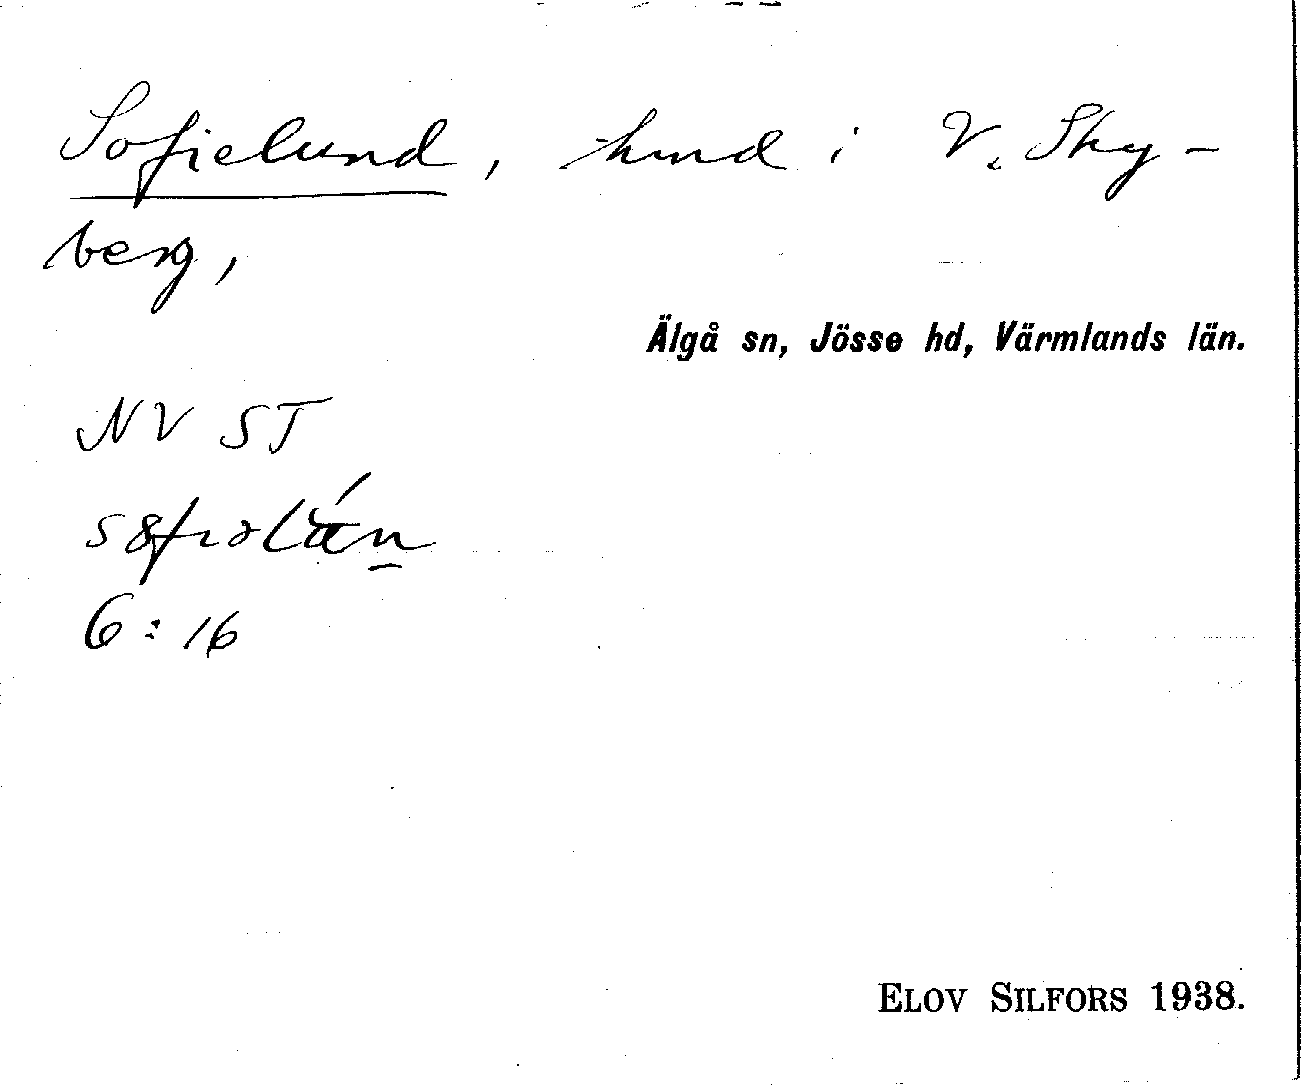 Sofielund, hmd i V. Sky-
berg,
Älgå sn, Jösse hd, Värmlands län.
NV ST
6:16
ELOV SILFORS 1938.